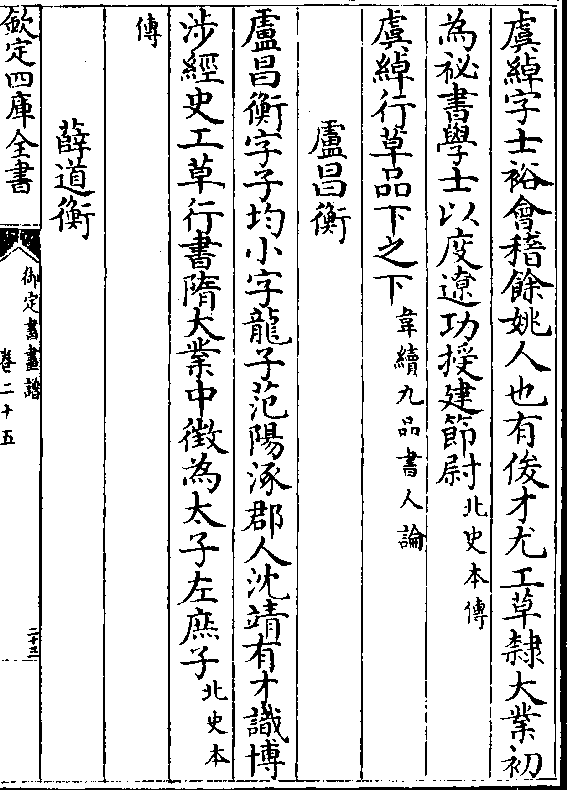 虞綽字士裕會稽餘姚人也有俊才尤工草隸大業初
為祕書學士以度遼功授建節尉北史本傳
虞綽行草品下之下韋續九品書人論
盧昌衡
盧昌衡字子均小字龍子范陽涿郡人沈靖有才識博
涉經史工草行書隋大業中徵為太子左庶子北史本
傳
薛道衡
欽定四庫全書
御定書畫譜
卷二十五
二十三